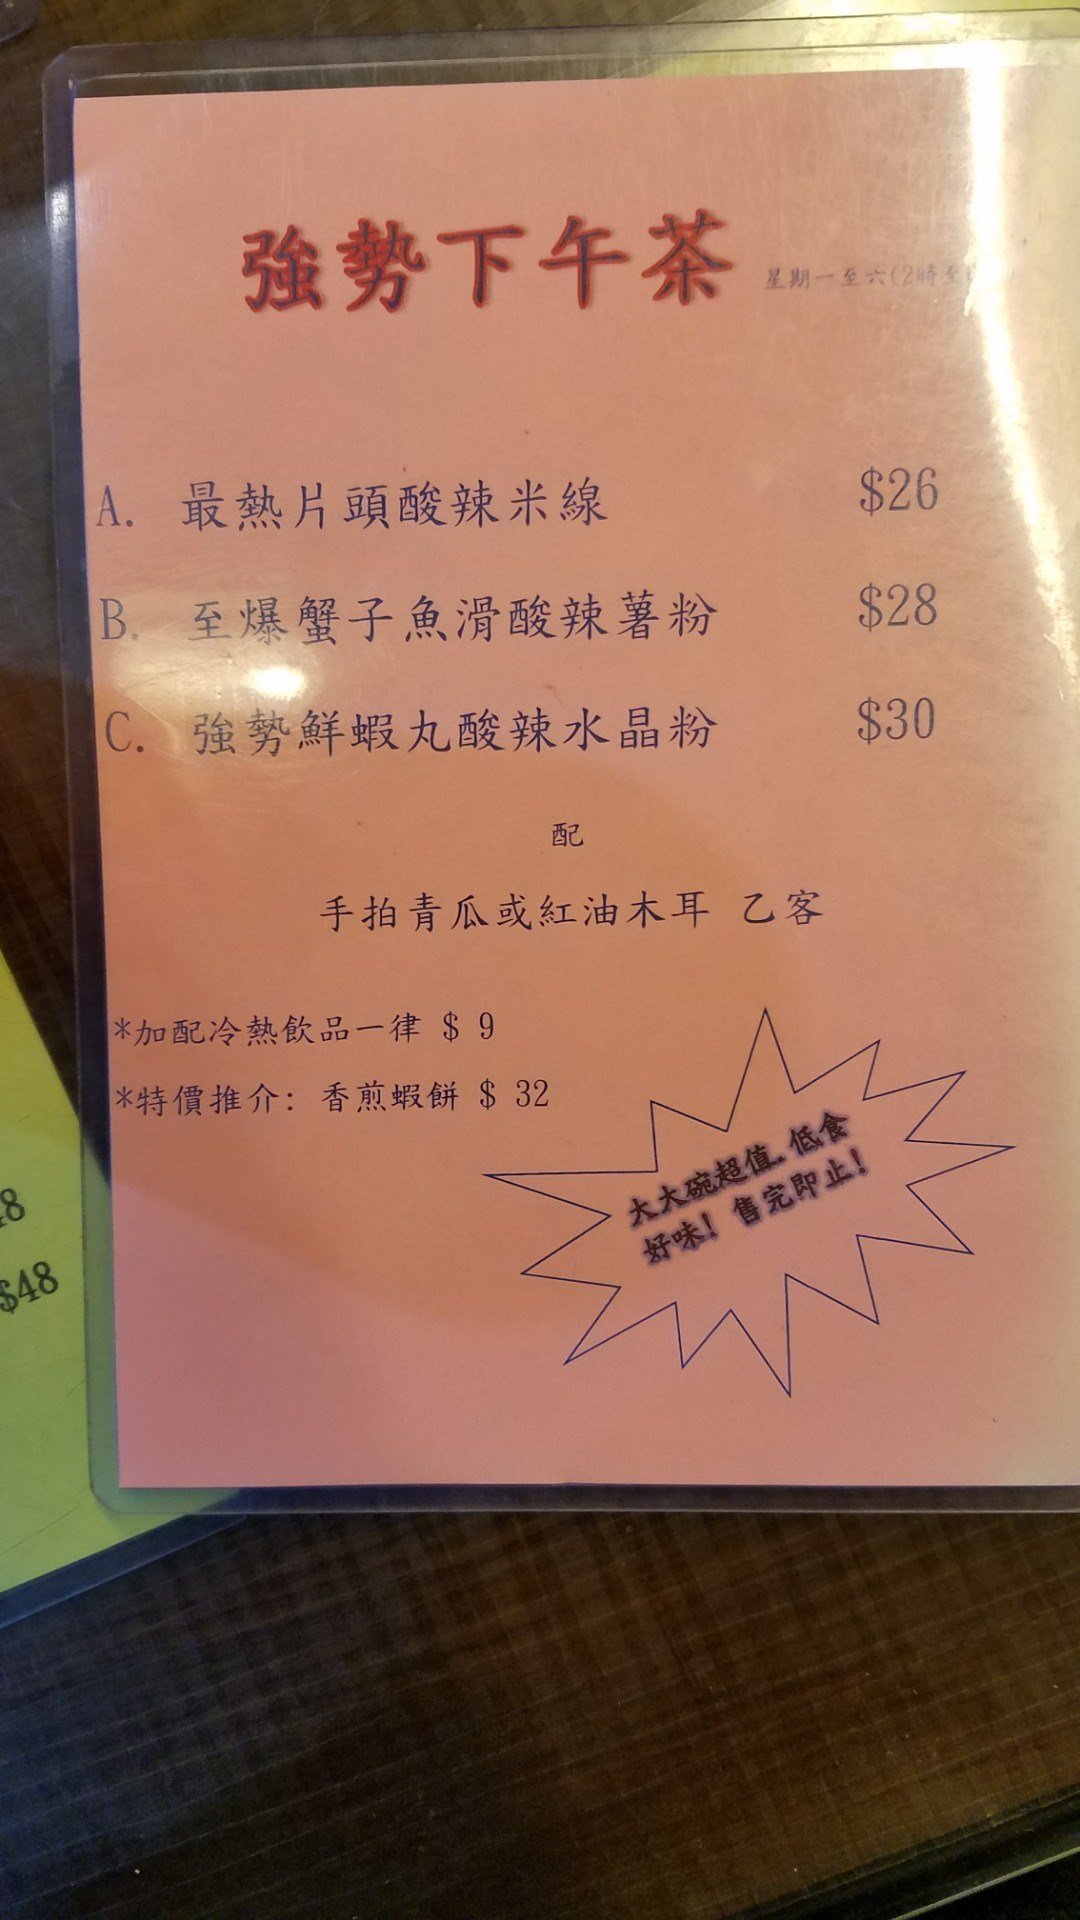 強勢下午茶 星期一至六(2時至
A. 最熱片頭酸辣米線 $26
B. 至爆蟹子魚滑酸辣薯粉 $28
C. 強勢鮮蝦丸酸辣水晶粉 $30
配
手拍青瓜或紅油木耳 乙客
*加配冷熱飲品一律 $ 9
*特價推介: 香煎蝦餅 $ 32
大大碗超值.低食
好味! 售完即止!
8
$48